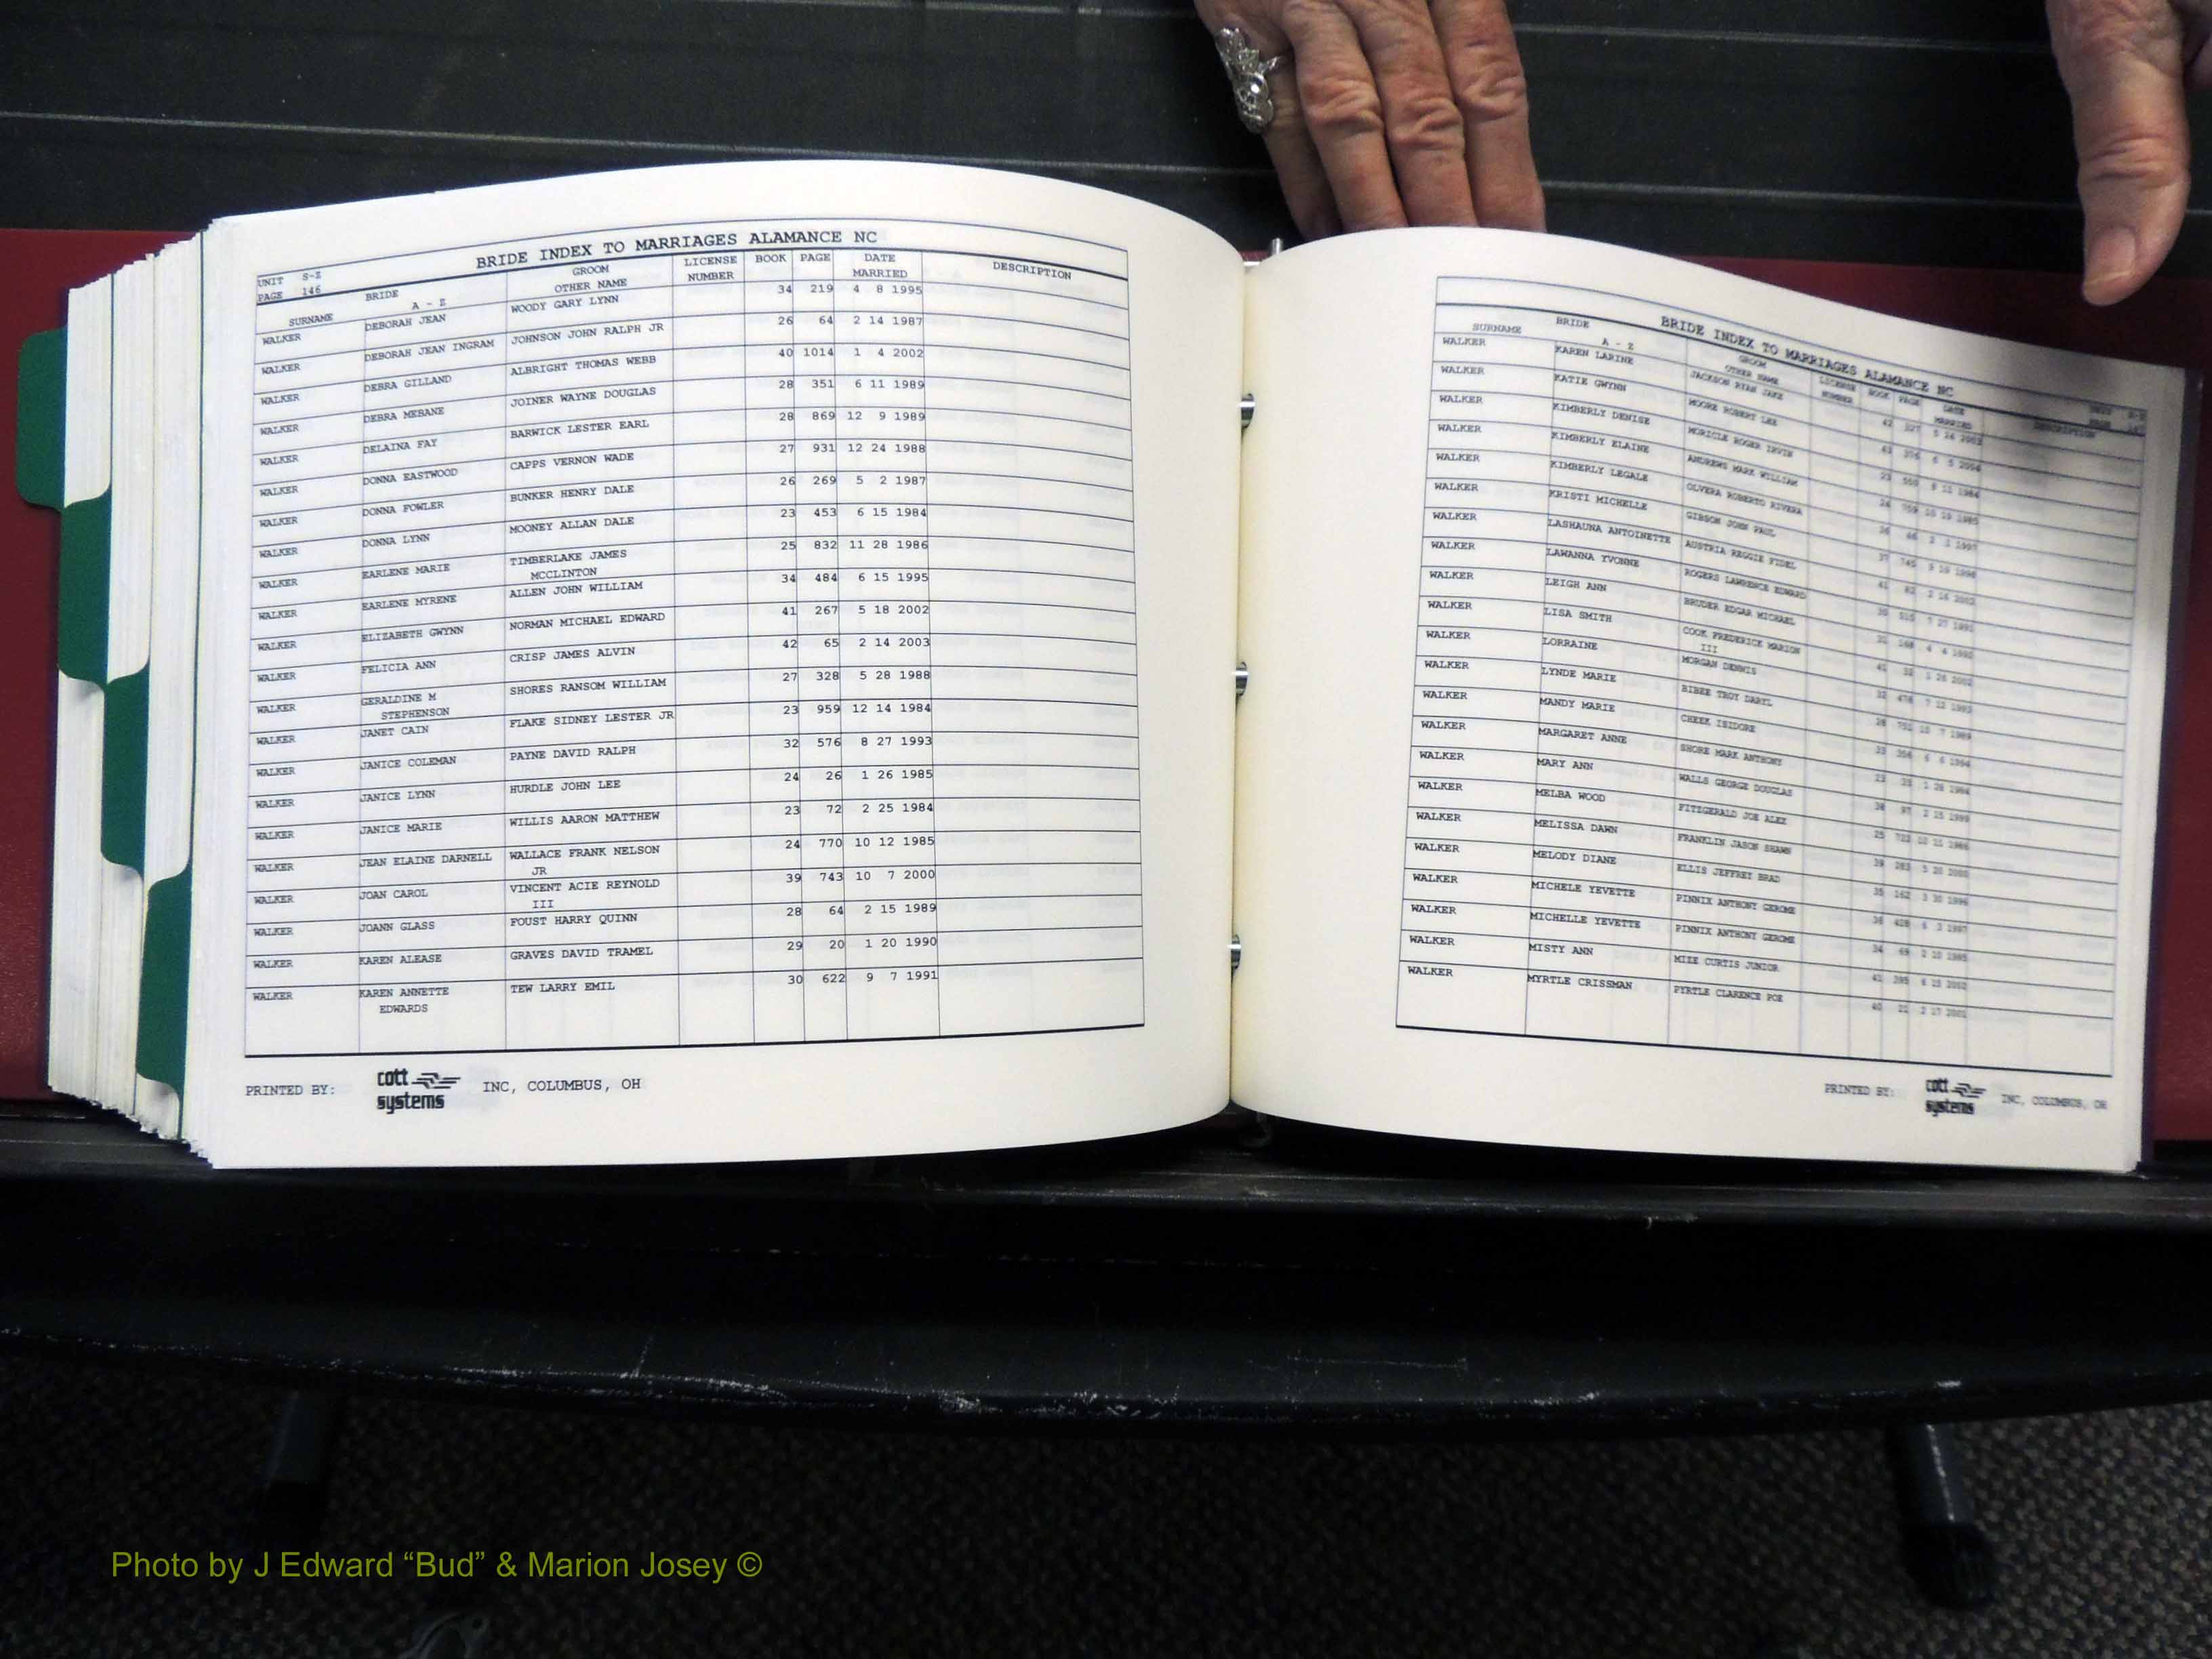 BRIDE INDEX TO MARRIAGES ALAMANCE NC
UNIT S-Z
PAGE 146
BRIDE GROOM LICENSE BOOK PAGE DATE DESCRIPTION
SURNAME A - Z OTHER NAME NUMBER MARRIED
WALKER DEBORAH JEAN WOODY GARY LYNN 34 219 4 8 1995
WALKER DEBORAH JEAN INGRAM JOHNSON JOHN RALPH JR 26 64 2 14 1987
WALKER DEBRA GILLAND ALBRIGHT THOMAS WEBB 40 1014 1 4 2002
WALKER DEBRA MEBANE JOINER WAYNE DOUGLAS 28 351 6 11 1989
WALKER DELAINA FAY BARWICK LESTER EARL 28 869 12 9 1989
WALKER DONNA EASTWOOD CAPPS VERNON WADE 27 931 12 24 1988
WALKER DONNA FOWLER BUNKER HENRY DALE 26 269 5 2 1987
WALKER DONNA LYNN MOONEY ALLAN DALE 23 453 6 15 1984
WALKER EARLENE MARIE TIMBERLAKE JAMES 25 832 11 28 1986
MCCLINTON
WALKER EARLENE MYRENE ALLEN JOHN WILLIAM 34 484 6 15 1995
WALKER ELIZABETH GWYNN NORMAN MICHAEL EDWARD 41 267 5 18 2002
WALKER FELICIA ANN CRISP JAMES ALVIN 42 65 2 14 2003
WALKER GERALDINE M SHORES RANSOM WILLIAM 27 328 5 28 1988
STEPHENSON
WALKER JANET CAIN FLAKE SIDNEY LESTER JR 23 959 12 14 1984
WALKER JANICE COLEMAN PAYNE DAVID RALPH 32 576 8 27 1993
WALKER JANICE LYNN HURDLE JOHN LEE 24 26 1 26 1985
WALKER JANICE MARIE WILLIS AARON MATTHEW 23 72 2 25 1984
WALKER JEAN ELAINE DARNELL WALLACE FRANK NELSON 24 770 10 12 1985
JR
WALKER JOAN CAROL VINCENT ACIE REYNOLD 39 743 10 7 2000
III
WALKER JOANN GLASS FOUST HARRY QUINN 28 64 2 15 1989
WALKER KAREN ALEASE GRAVES DAVID TRAMEL 29 20 1 20 1990
WALKER KAREN ANNETTE TEW LARRY EMIL 30 622 9 7 1991
EDWARDS
PRINTED BY: cott systems INC, COLUMBUS, OH
BRIDE INDEX TO MARRIAGES ALAMANCE NC
BRIDE GROOM LICENSE BOOK PAGE DATE DESCRIPTION
SURNAME A - Z OTHER NAME NUMBER MARRIED
WALKER KAREN LARINE JACKSON RYAN JAKE
WALKER KATIE GWYNN MOORE ROBERT LEE
WALKER KIMBERLY DENISE MORICLE ROGER IRVIN
WALKER KIMBERLY ELAINE ANDREWS MARK WILLIAM
WALKER KIMBERLY LEGALE OLVERA ROBERTO RIVERA
WALKER KRISTI MICHELLE GIBSON JOHN PAUL
WALKER LASHAUNA ANTOINETTE AUSTRIA REGGIE FIDEL
WALKER LAWANNA YVONNE ROGERS LAWRENCE EDWARD
WALKER LEIGH ANN BRUDER EDGAR MICHAEL
WALKER LISA SMITH COOK FREDERICK MARION
III
WALKER LORRAINE MORGAN DENNIS
WALKER LYNDE MARIE BIBEE TROY DARYL
WALKER MANDY MARIE CHEEK ISIDORE
WALKER MARGARET ANNE SHORE MARK ANTHONY
WALKER MARY ANN WALLS GEORGE DOUGLAS
WALKER MELBA WOOD FITZGERALD JOE ALEX
WALKER MELISSA DAWN FRANKLIN JASON SHAWN
WALKER MELODY DIANE ELLIS JEFFREY BRAD
WALKER MICHELE YEVETTE PINNIX ANTHONY GEROME
WALKER MICHELLE YEVETTE PINNIX ANTHONY GEROME
WALKER MISTY ANN MIZE CURTIS JUNIOR
WALKER MYRTLE CRISSMAN PYRTLE CLARENCE POE
PRINTED BY: cott systems INC, COLUMBUS, OH
Photo by J Edward “Bud” & Marion Josey ©